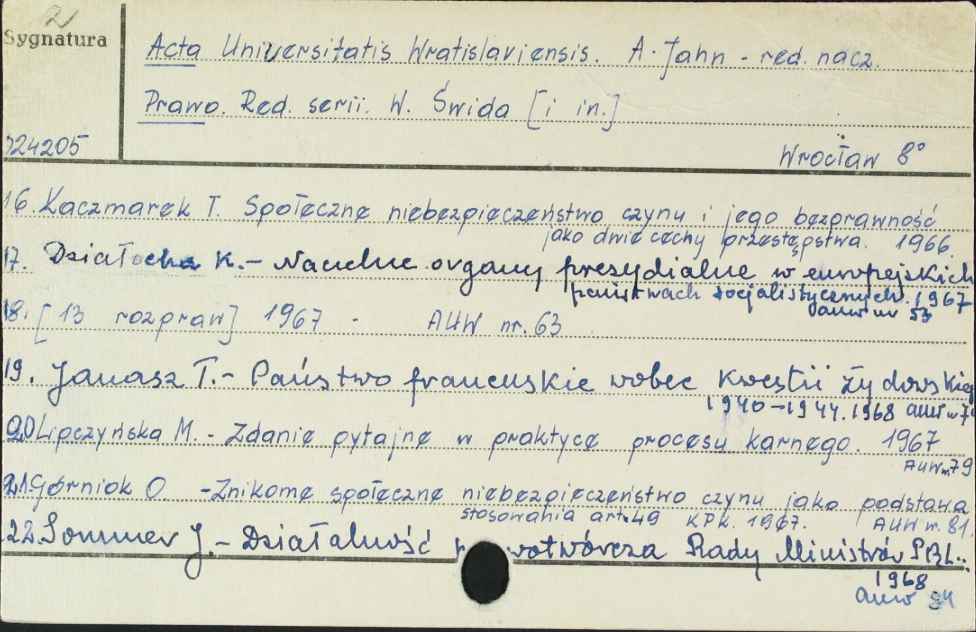 2
Sygnatura
Acta Universitatis Wratislaviensis. A. Jahn - red. nacz.
Prawo. Red. serii. W. Świda [i in.]
024205
Wrocław 8°
16. Kaczmarek T. Społeczne niebezpieczeństwo czynu i jego bezprawność
jako dwie cechy przestępstwa. 1966.
17. Działocha K. - Naczelne organy prezydialne w europejskich
państwach socjalistycznych. 1967
auw nr 53
18. [13 rozpraw] 1967 - AUW nr. 63
19. Janasz T. - Państwo francuskie wobec kwestii żydowskiej
1940-1944. 1968 auw nr
20 Lipczyńska M. - Zdanie pytajne w praktyce procesu karnego. 1967
AUW nr 79
21. Górniok O - Znikome społeczne niebezpieczeństwo czynu jako podstawa
stosowania art. 49 KPK. 1967. AUW nr. 81.
22. Sommer J. - Działalność Rady Ministrów PRL.
1968
auw 94